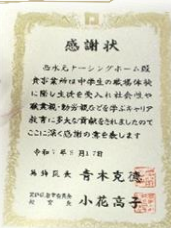 感謝状
西水元ナーシングホーム殿
貴事業所は中学生の職場体験
に際し生徒を受入れ社会性や
職業観・勤労観などを学ぶキャリア
教育に多大な貢献をされましたので
ここに深く感謝の意を表します
令和 年 月17日
葛飾区長 青木克德
葛飾区教育委員会
教育長 小花高子